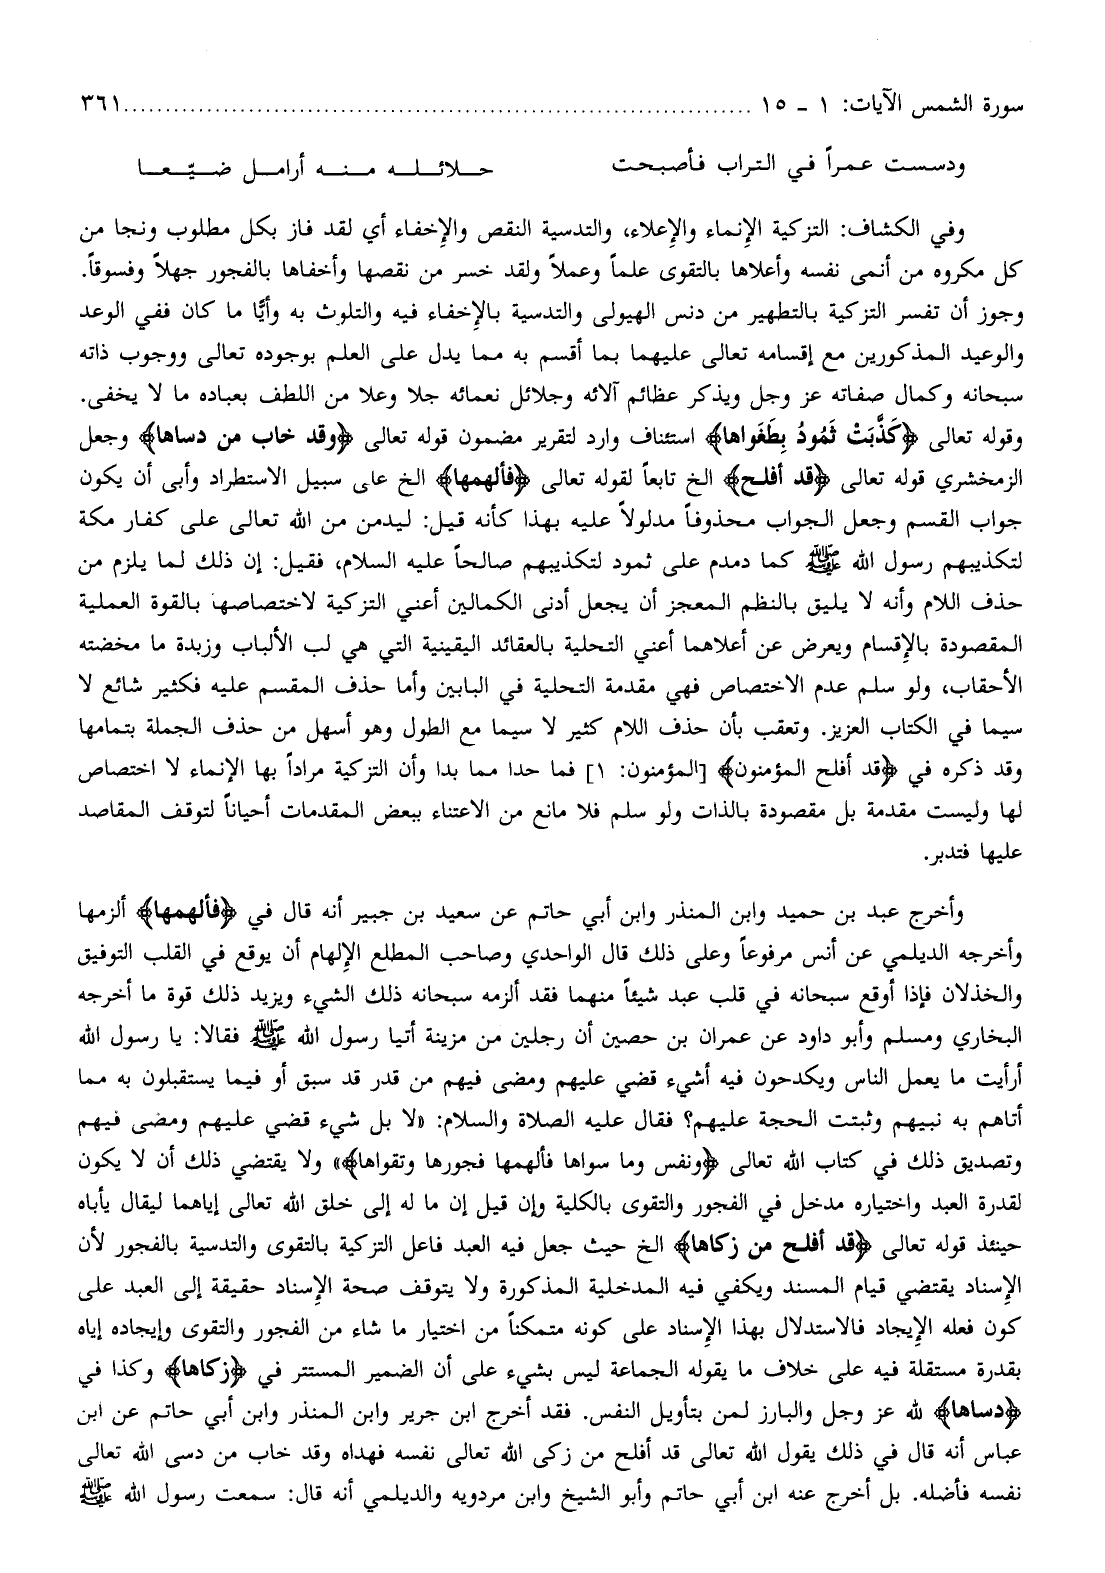 سورة الشمس الآيات: ١ - ١٥ ........................................................................... ٣٦١
ودسست عمراً في التراب فأصبحت حلائله منه أرامل ضيّعا
وفي الكشاف: التزكية الإنماء والإعلاء، والتدسية النقص والإخفاء أي لقد فاز بكل مطلوب ونجا من
كل مكروه من أنمى نفسه وأعلاها بالتقوى علماً وعملاً ولقد خسر من نقصها وأخفاها بالفجور جهلاً وفسوقاً.
وجوز أن تفسر التزكية بالتطهير من دنس الهيولى والتدسية بالإخفاء فيه والتلوث به وأيًّا ما كان ففي الوعد
والوعيد المذكورين مع إقسامه تعالى عليهما بما أقسم به مما يدل على العلم بوجوده تعالى ووجوب ذاته
سبحانه وكمال صفاته عز وجل ويذكر عظائم آلائه وجلائل نعمائه جلا وعلا من اللطف بعباده ما لا يخفى.
وقوله تعالى ﴿كَذَّبَتْ ثَمُودُ بِطَغَواها﴾ استئناف وارد لتقرير مضمون قوله تعالى ﴿وقد خاب من دساها﴾ وجعل
الزمخشري قوله تعالى ﴿قد أفلح﴾ الخ تابعاً لقوله تعالى ﴿فألهمها﴾ الخ على سبيل الاستطراد وأبى أن يكون
جواب القسم وجعل الجواب محذوفاً مدلولاً عليه بهذا كأنه قيل: ليدمن من الله تعالى على كفار مكة
لتكذيبهم رسول الله ﷺ كما دمدم على ثمود لتكذيبهم صالحاً عليه السلام، فقيل: إن ذلك لما يلزم من
حذف اللام وأنه لا يليق بالنظم المعجز أن يجعل أدنى الكمالين أعني التزكية لاختصاصها بالقوة العملية
المقصودة بالإقسام ويعرض عن أعلاهما أعني التحلية بالعقائد اليقينية التي هي لب الألباب وزبدة ما مخضته
الأحقاب، ولو سلم عدم الاختصاص فهي مقدمة التحلية في البابين وأما حذف المقسم عليه فكثير شائع لا
سيما في الكتاب العزيز. وتعقب بأن حذف اللام كثير لا سيما مع الطول وهو أسهل من حذف الجملة بتمامها
وقد ذكره في ﴿قد أفلح المؤمنون﴾ [المؤمنون: ١] فما حدا مما بدا وأن التزكية مراداً بها الإنماء لا اختصاص
لها وليست مقدمة بل مقصودة بالذات ولو سلم فلا مانع من الاعتناء ببعض المقدمات أحياناً لتوقف المقاصد
عليها فتدبر.
وأخرج عبد بن حميد وابن المنذر وابن أبي حاتم عن سعيد بن جبير أنه قال في ﴿فألهمها﴾ ألزمها
وأخرجه الديلمي عن أنس مرفوعاً وعلى ذلك قال الواحدي وصاحب المطلع الإلهام أن يوقع في القلب التوفيق
والخذلان فإذا أوقع سبحانه في قلب عبد شيئاً منهما فقد ألزمه سبحانه ذلك الشيء ويزيد ذلك قوة ما أخرجه
البخاري ومسلم وأبو داود عن عمران بن حصين أن رجلين من مزينة أتيا رسول الله ﷺ فقالا: يا رسول الله
أرأيت ما يعمل الناس ويكدحون فيه أشيء قضي عليهم ومضى فيهم من قدر قد سبق أو فيما يستقبلون به مما
أتاهم به نبيهم وثبتت الحجة عليهم؟ فقال عليه الصلاة والسلام: «لا بل شيء قضي عليهم ومضى فيهم
وتصديق ذلك في كتاب الله تعالى ﴿ونفس وما سواها فألهمها فجورها وتقواها﴾» ولا يقتضي ذلك أن لا يكون
لقدرة العبد واختياره مدخل في الفجور والتقوى بالكلية وإن قيل إن ما له إلى خلق الله تعالى إياهما ليقال يأباه
حينئذ قوله تعالى ﴿قد أفلح من زكاها﴾ الخ حيث جعل فيه العبد فاعل التزكية بالتقوى والتدسية بالفجور لأن
الإسناد يقتضي قيام المسند ويكفي فيه المدخلية المذكورة ولا يتوقف صحة الإسناد حقيقة إلى العبد على
كون فعله الإيجاد فالاستدلال بهذا الإسناد على كونه متمكناً من اختيار ما شاء من الفجور والتقوى وإيجاده إياه
بقدرة مستقلة فيه على خلاف ما يقوله الجماعة ليس بشيء على أن الضمير المستتر في ﴿زكاها﴾ وكذا في
﴿دساها﴾ لله عز وجل والبارز لمن بتأويل النفس. فقد أخرج ابن جرير وابن المنذر وابن أبي حاتم عن ابن
عباس أنه قال في ذلك يقول الله تعالى قد أفلح من زكى الله تعالى نفسه فهداه وقد خاب من دسى الله تعالى
نفسه فأضله. بل أخرج عنه ابن أبي حاتم وأبو الشيخ وابن مردويه والديلمي أنه قال: سمعت رسول الله ﷺ